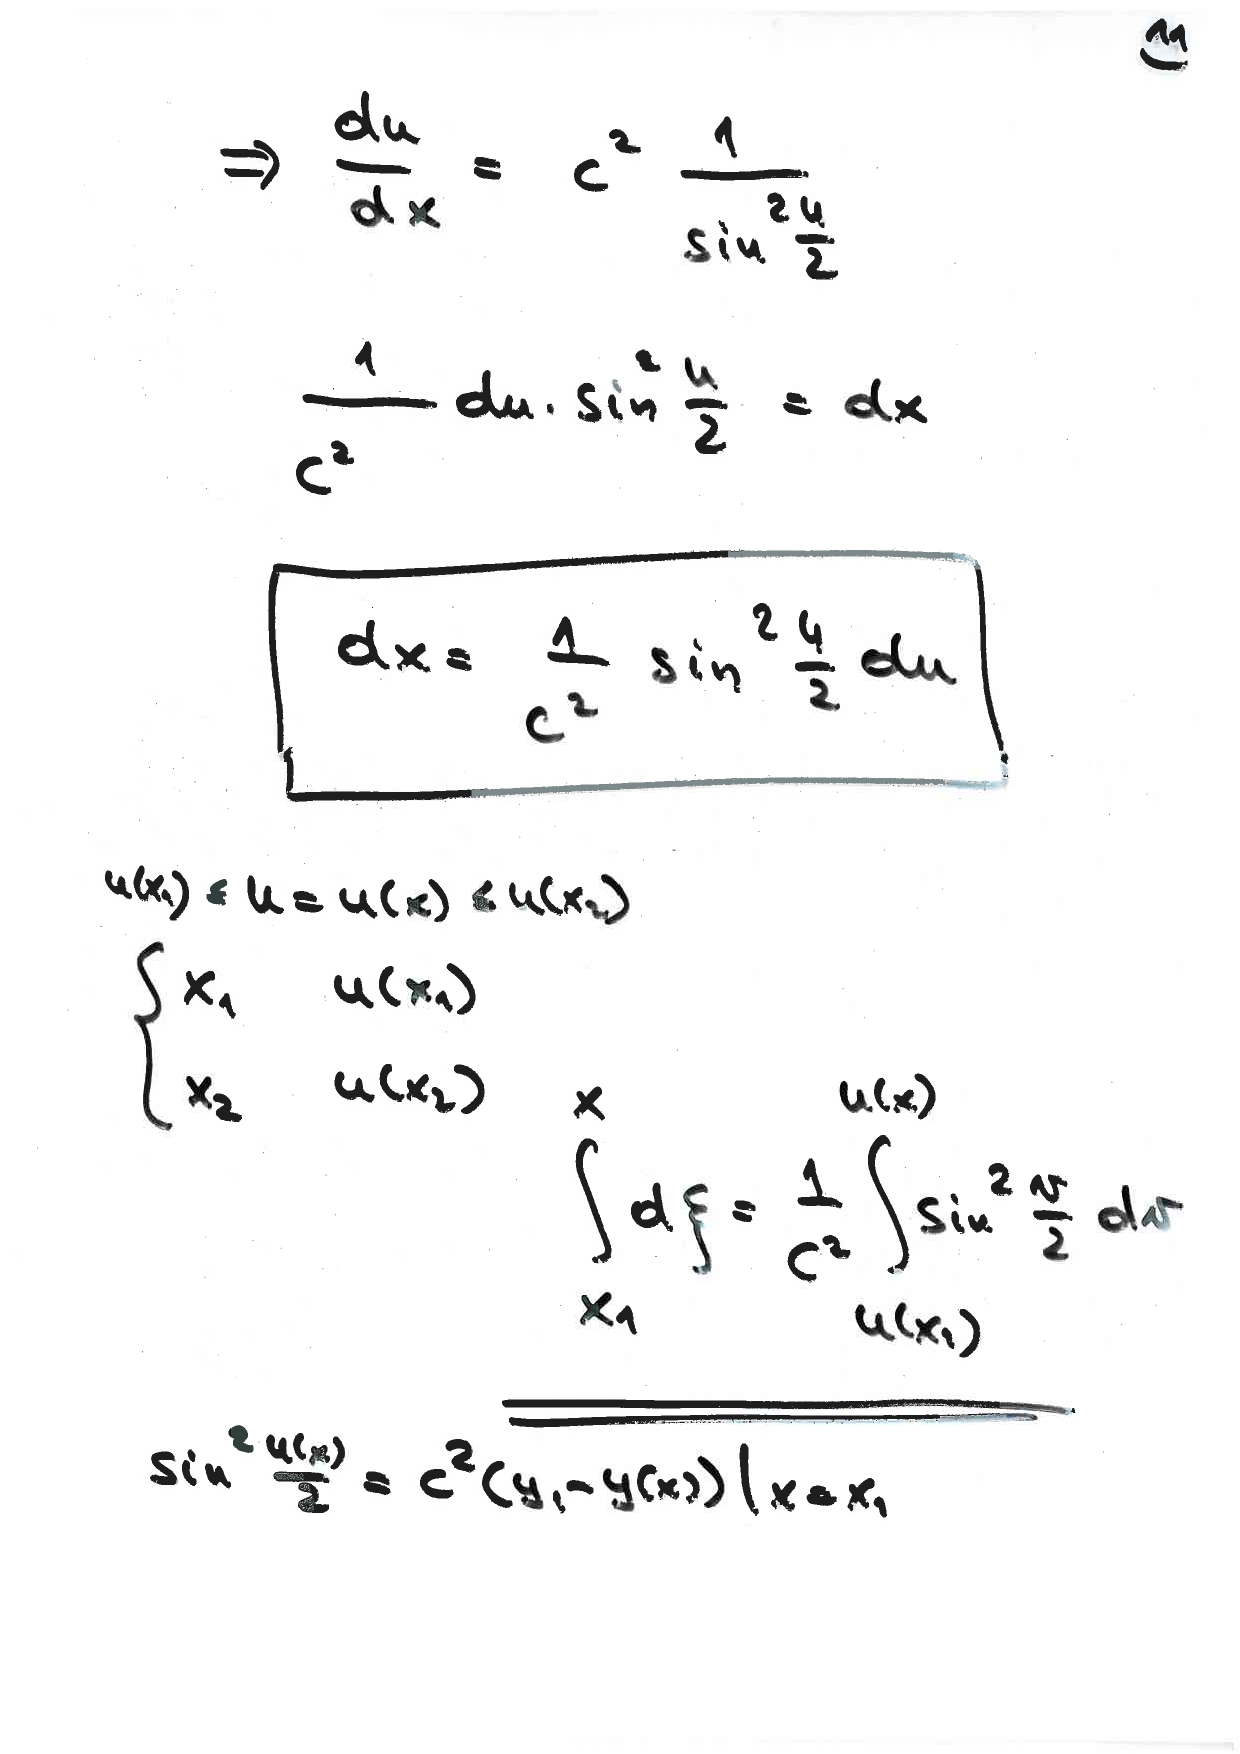 11
⇒ du/dx = c² 1/(sin² u/2)
1/c² du · sin² u/2 = dx
dx = 1/c² sin² u/2 du
u(x₁) ≤ u = u(x) ≤ u(x₂)
{ x₁ u(x₁)
x₂ u(x₂)
∫_{x₁}^{x} dξ = 1/c² ∫_{u(x₁)}^{u(x)} sin² v/2 dv
sin² u(x)/2 = c² (y₁ - y(x)) | x = x₁